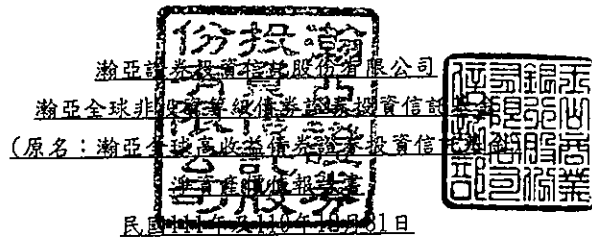 瀚亞證券投資信託股份有限公司
瀚亞全球非投資等級債券證券投資信託基金
(原名：瀚亞全球高收益債券證券投資信託基金)
淨資產價值報告書
民國111年及110年12月31日